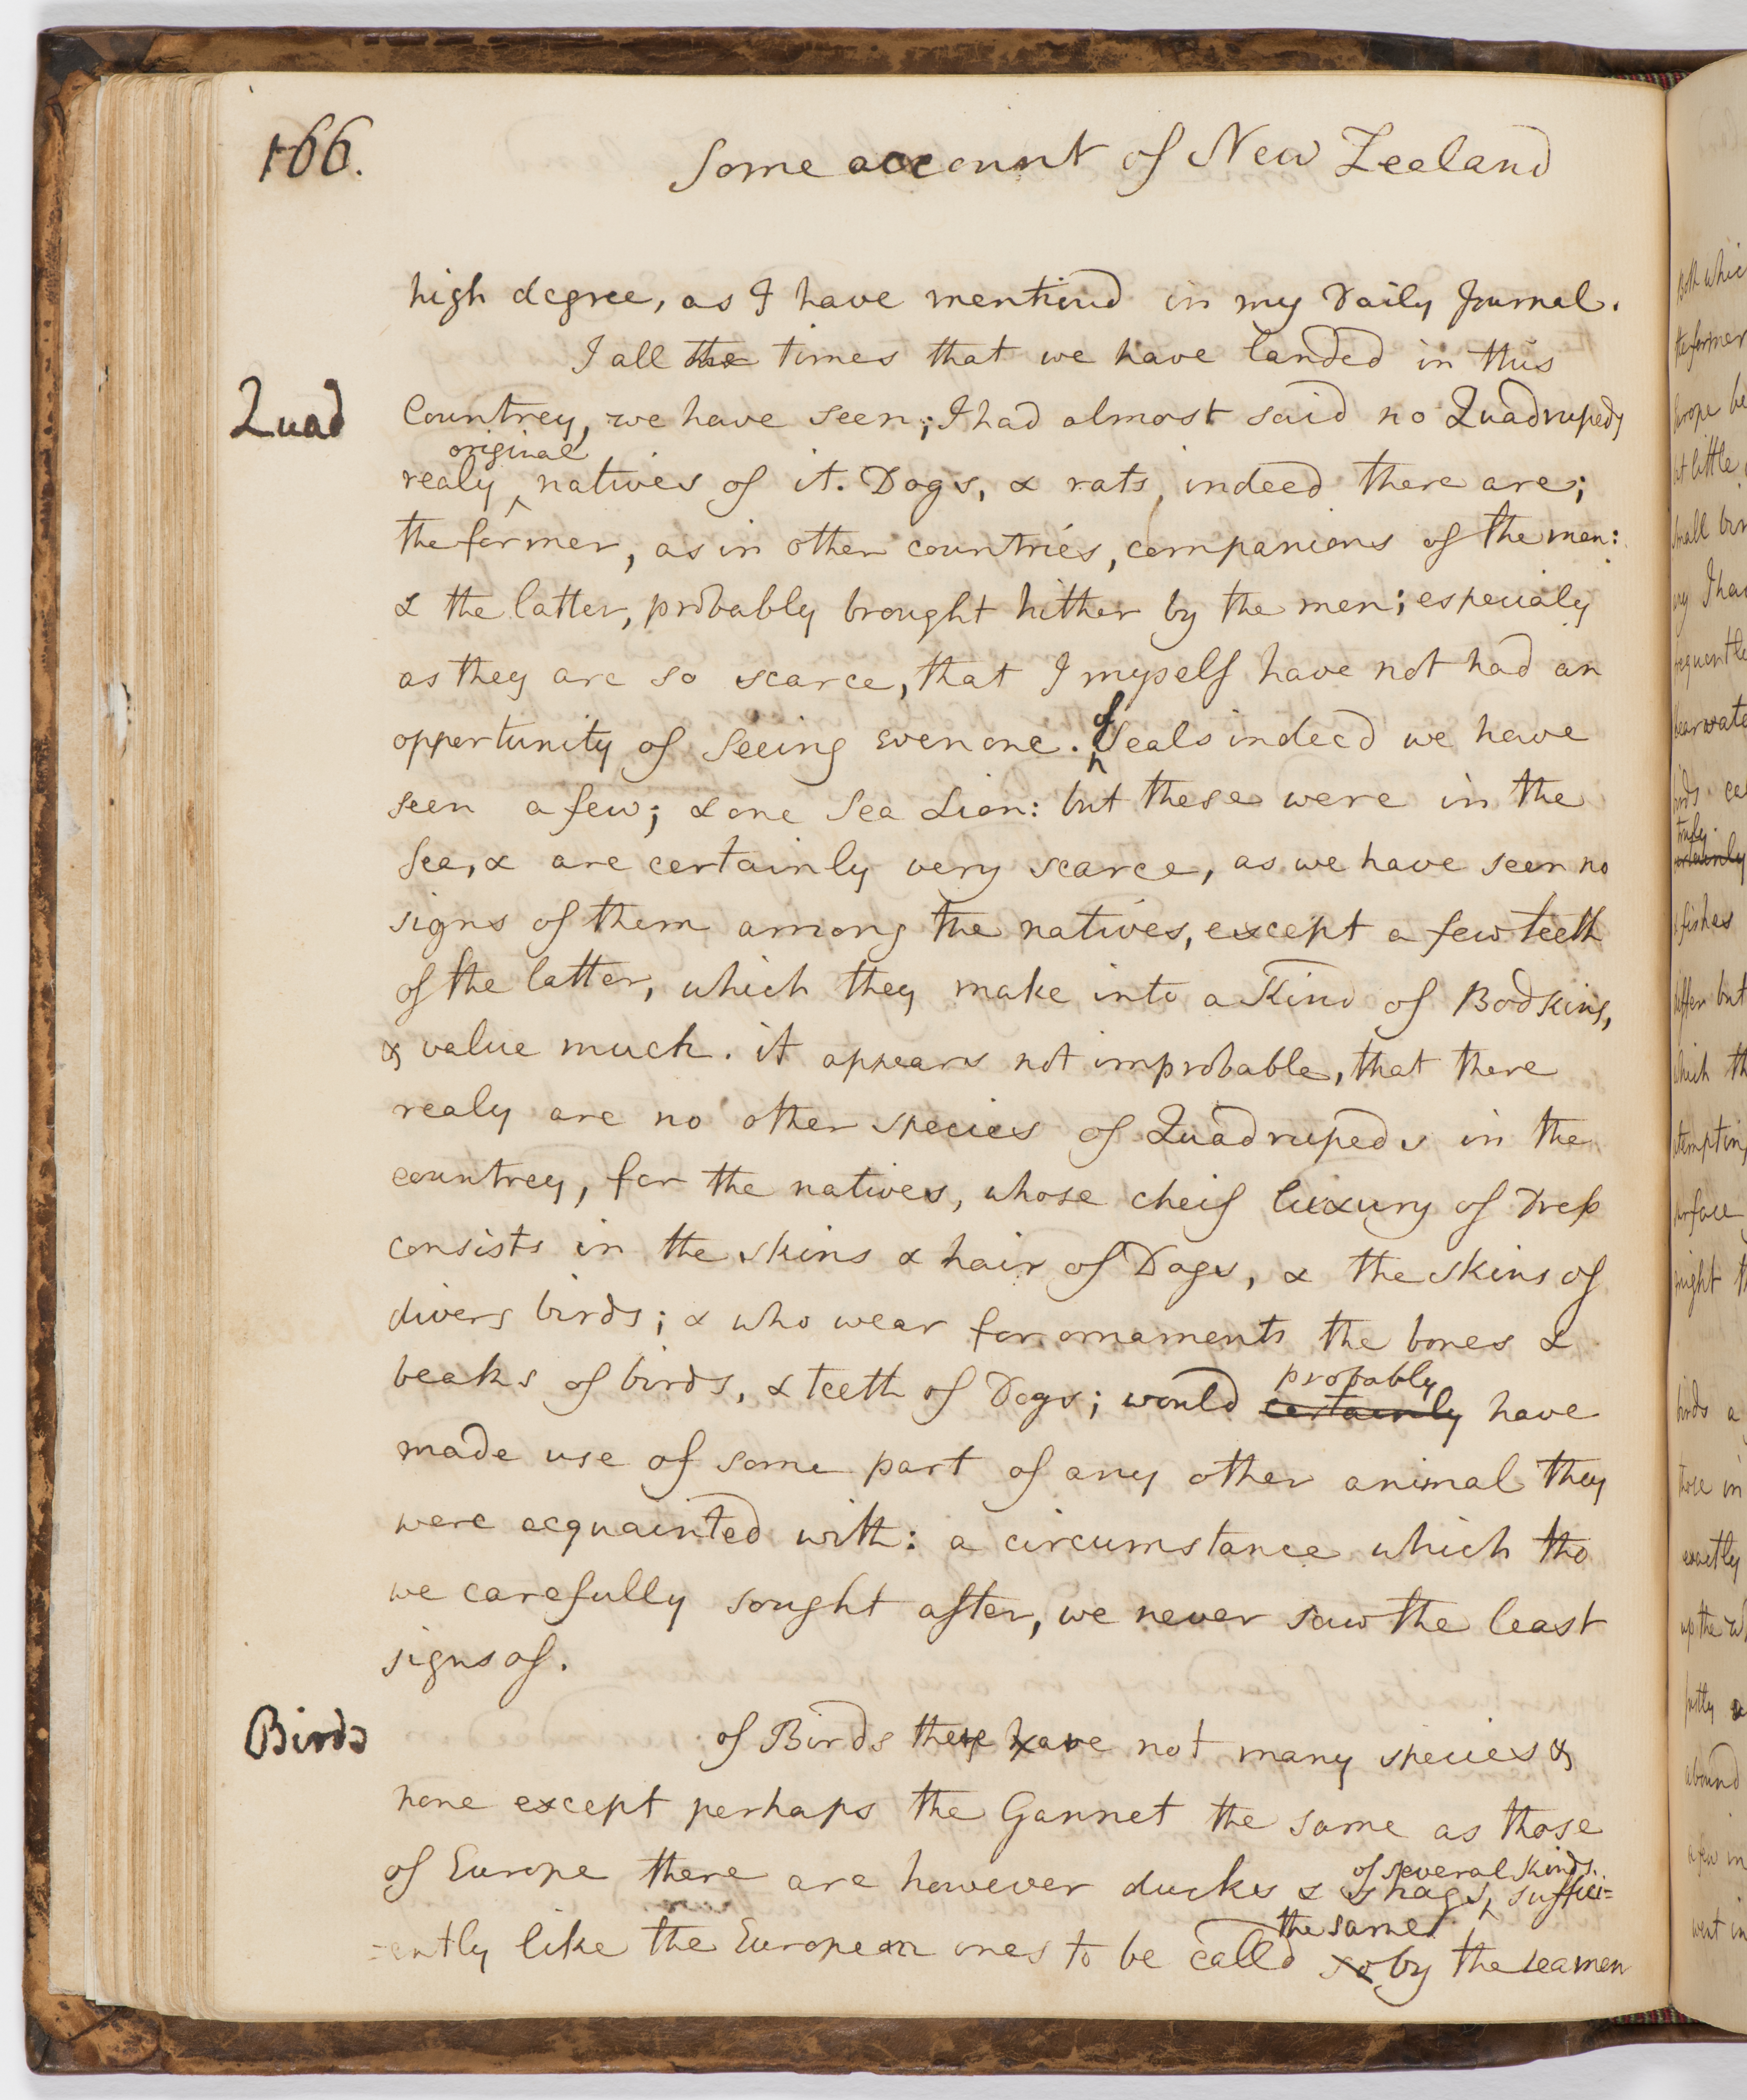 166.
Some account of New Zeeland
high degree, as I have mentiond in my Daily Journal.
I all the times that we have landed in this
Quad
Countrey, we have seen; I had almost said no Quadrupeds
original
realy natives of it. Dogs, & rats, indeed there are;
the former, as in other countries, companions of the men:
& the latter, probably brought hither by the men; especialy
as they are so scarce, that I myself have not had an
opportunity of seeing even one. of Seals indeed we have
seen a few; & one Sea Lion: but these were in the
Sea, & are certainly very scarce, as we have seen no
signs of them among the natives, except a few teeth
of the latter, which they make into a Kind of Bodkins,
& value much. it appears not improbable, that there
realy are no other species of Quadrupeds in the
countrey, for the natives, whose cheif luxury of Dress
consists in the skins & hair of Dogs, & the skins of
divers birds; & who wear for ornaments the bones &
probably
beaks of birds, & teeth of Dogs; would certainly have
made use of some part of any other animal they
were acquainted with: a circumstance which tho
we carefully sought after, we never saw the least
signs of.
Birds
of Birds there are not many species &
none except perhaps the Gannet the same as those
of several kinds.
of Europe there are however ducks & shags, suffici=
the same
=ently like the European ones to be calld so by the seamen
both whic
the former
Europe be
but little
small bir
I ha
frequentle
truly
certainly
& fishes
differ but
which th
surface
might th
birds a
those in
exactly
up the wh
abound
a few in
went in